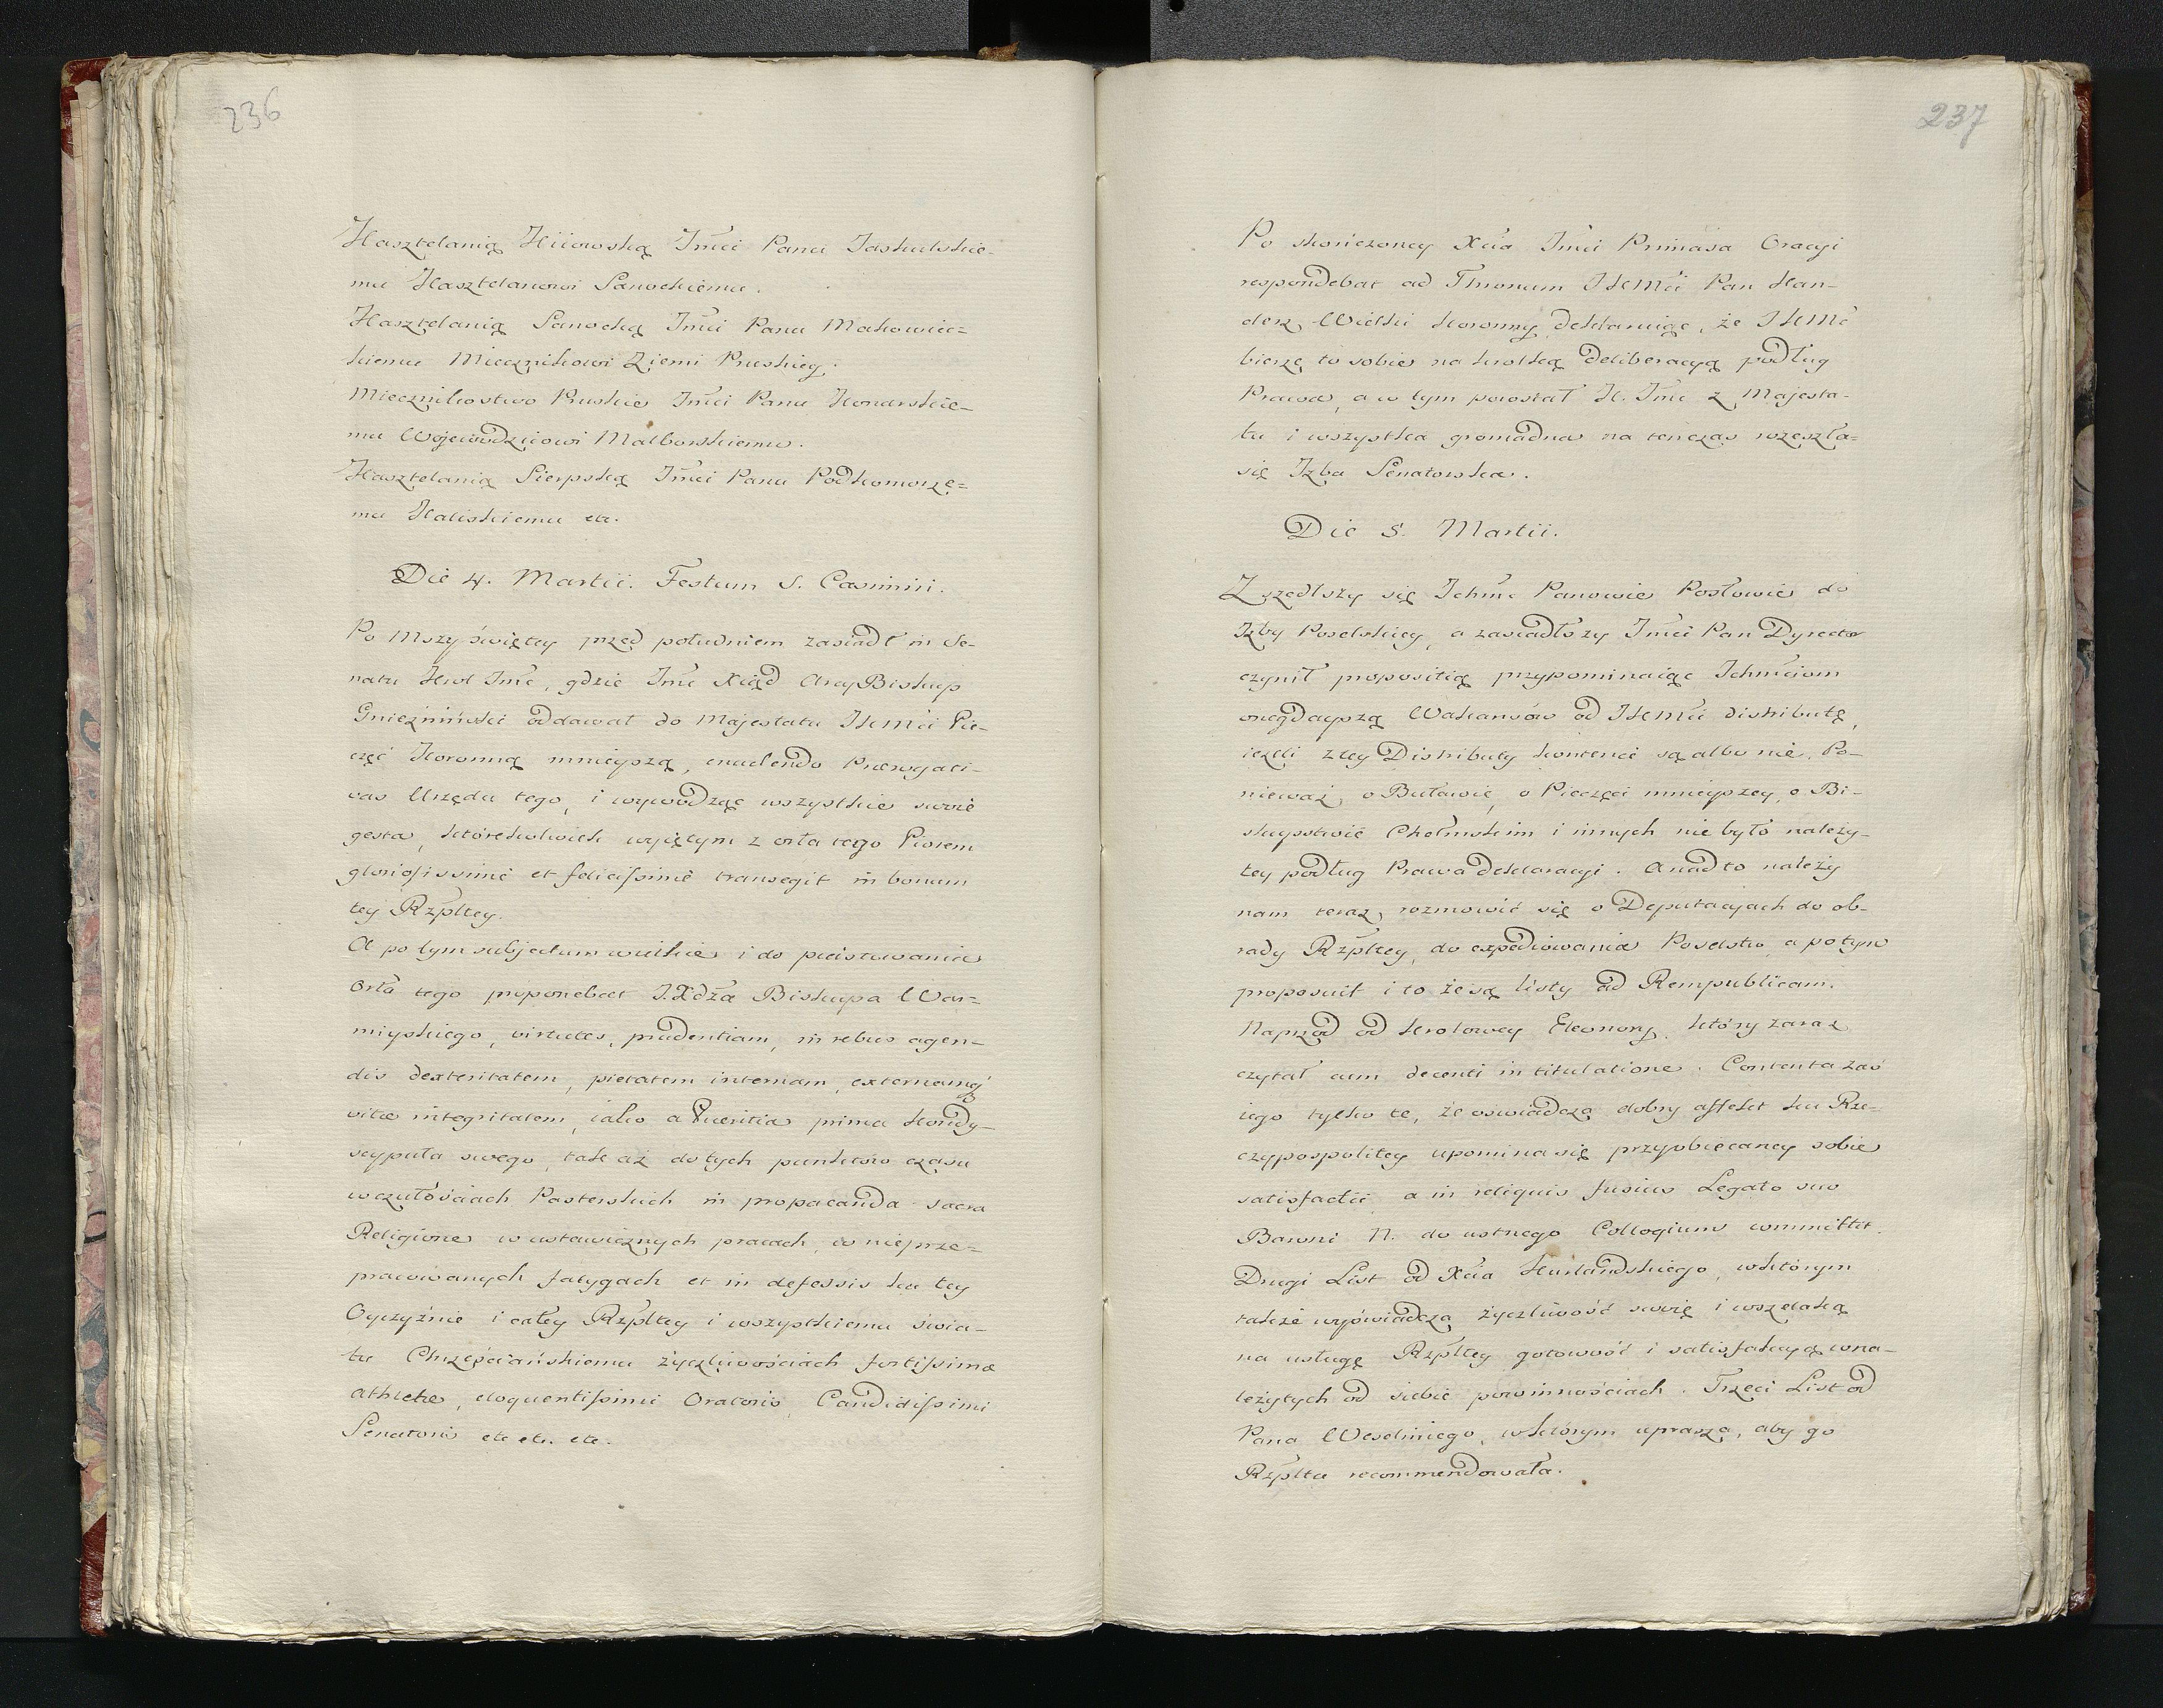 236
Kasztelanią Kiiowską Jmci Panu Jaskulskie-
mu Kasztelanowi Sanockiemu.
Kasztelanią Sanocką Jmci Panu Makowiec=
kiemu Miecznikowi Ziemi Pruskiey.
Miecznikostwo Pruskie Jmci Panu Konarskie-
mu Wojewodzicowi Malborskiemu.
Kasztelanią Sierpską Jmci Panu Podkomorze=
mu Kaliskiemu etc.
Die 4. Martii. Festum S. Casimiri.
Po Mszy świętey przed południem zasiadł in Se-
natu Krol Jmć, gdzie Jmć Xiądz Arcy Biskup
Gnieźniński oddawał do Majestatu JKMci Pie-
częć Koronną mnieyszą, enucleando Prerogati-
vas Urzędu tego, i wywodząc wszystkie swoie
gesta, którekolwiek wyiętym z orła tego Piorem
gloriosissime et felicissime transegit in bonum
tey Rzpltey.
A po tym subjectum wielkie i do piastowania
Orła tego proponebat J.Xdza Biskupa War=
miyskiego, virtutes, prudentiam, in rebus agen-
dis dexteritatem, pietatem internam, externamq
vitæ integritatem, iako a Pueritia prima Kondy-
scypuła swego, tak aż do tych punktów czasu
w czułościach Pasterskich in propacanda sacra
Religione w ustawicznych pracach, w nieprze=
pracowanych fatygach et in defessis ku tey
Oyczyźnie i całey Rzpltey i wszystkiemu świa-
tu Chrześciańskiemu życzliwościach fortissimæ
Athletæ, eloquentissimi Oratoris, Candidissimi
Senatoris etc etc. etc.
237
Po skończoney Xcia Jmci Primasa Oracyi
respondebat ad Thronum JKMci Pan Kan-
clerz Wielki Koronny deklaruiąc, że JKMć
bierze to sobie na krotką deliberacyą podług
Prawa, a w tym powstał K. Jmć z Majesta-
tu i wszystka gromadna na tenczas rozeszła=
się Izba Senatorska.
Die 5. Martii.
Zszedłszy się Ichmć Panowie Posłowie do
Izby Poselskiey, a zasiadłszy Jmci Pan Dyrector
czynił propositią przypominaiąc Ichmciom
onegdayszą Wakansów od JKMci distributę,
ieżeli z tey Distributy kontenci są albo nie. Po-
nieważ, o Buławie, o Pieczęci mnieyszey, o Bi-
skupstwie Chełmskim i innych nie było należy-
tey podług Prawa deklaracyi. A nad to należy
nam teraz, rozmowić się o Deputacyach do ob-
rady Rzpltey, do expediowania Poselstw, a potym
proposuit i to że są listy ad Rempublicam.
Naprzod od Krolowey Eleonory, który zaraz
czytał cum decenti intitulatione. Contenta zaś
iego tylko te, że oswiadcza dobry affekt ku Rze-
czypospolitey upomina się przyobiecaney sobie
satisfactii, a in reliquis fusius Legato suo
Baroni N. do ustnego Collogium committit.
Drugi List od Xcia Kurlandskiego, w którym
także wyświadcza życzliwość swoię i wszelaką
na usługę Rzpltey gotowość i satisfakcyą w na-
leżytych od siebie powinnościach. Trzeci List od
Pana Weseliniego, w którym uprasza, aby go
Rzplta recommendowała.